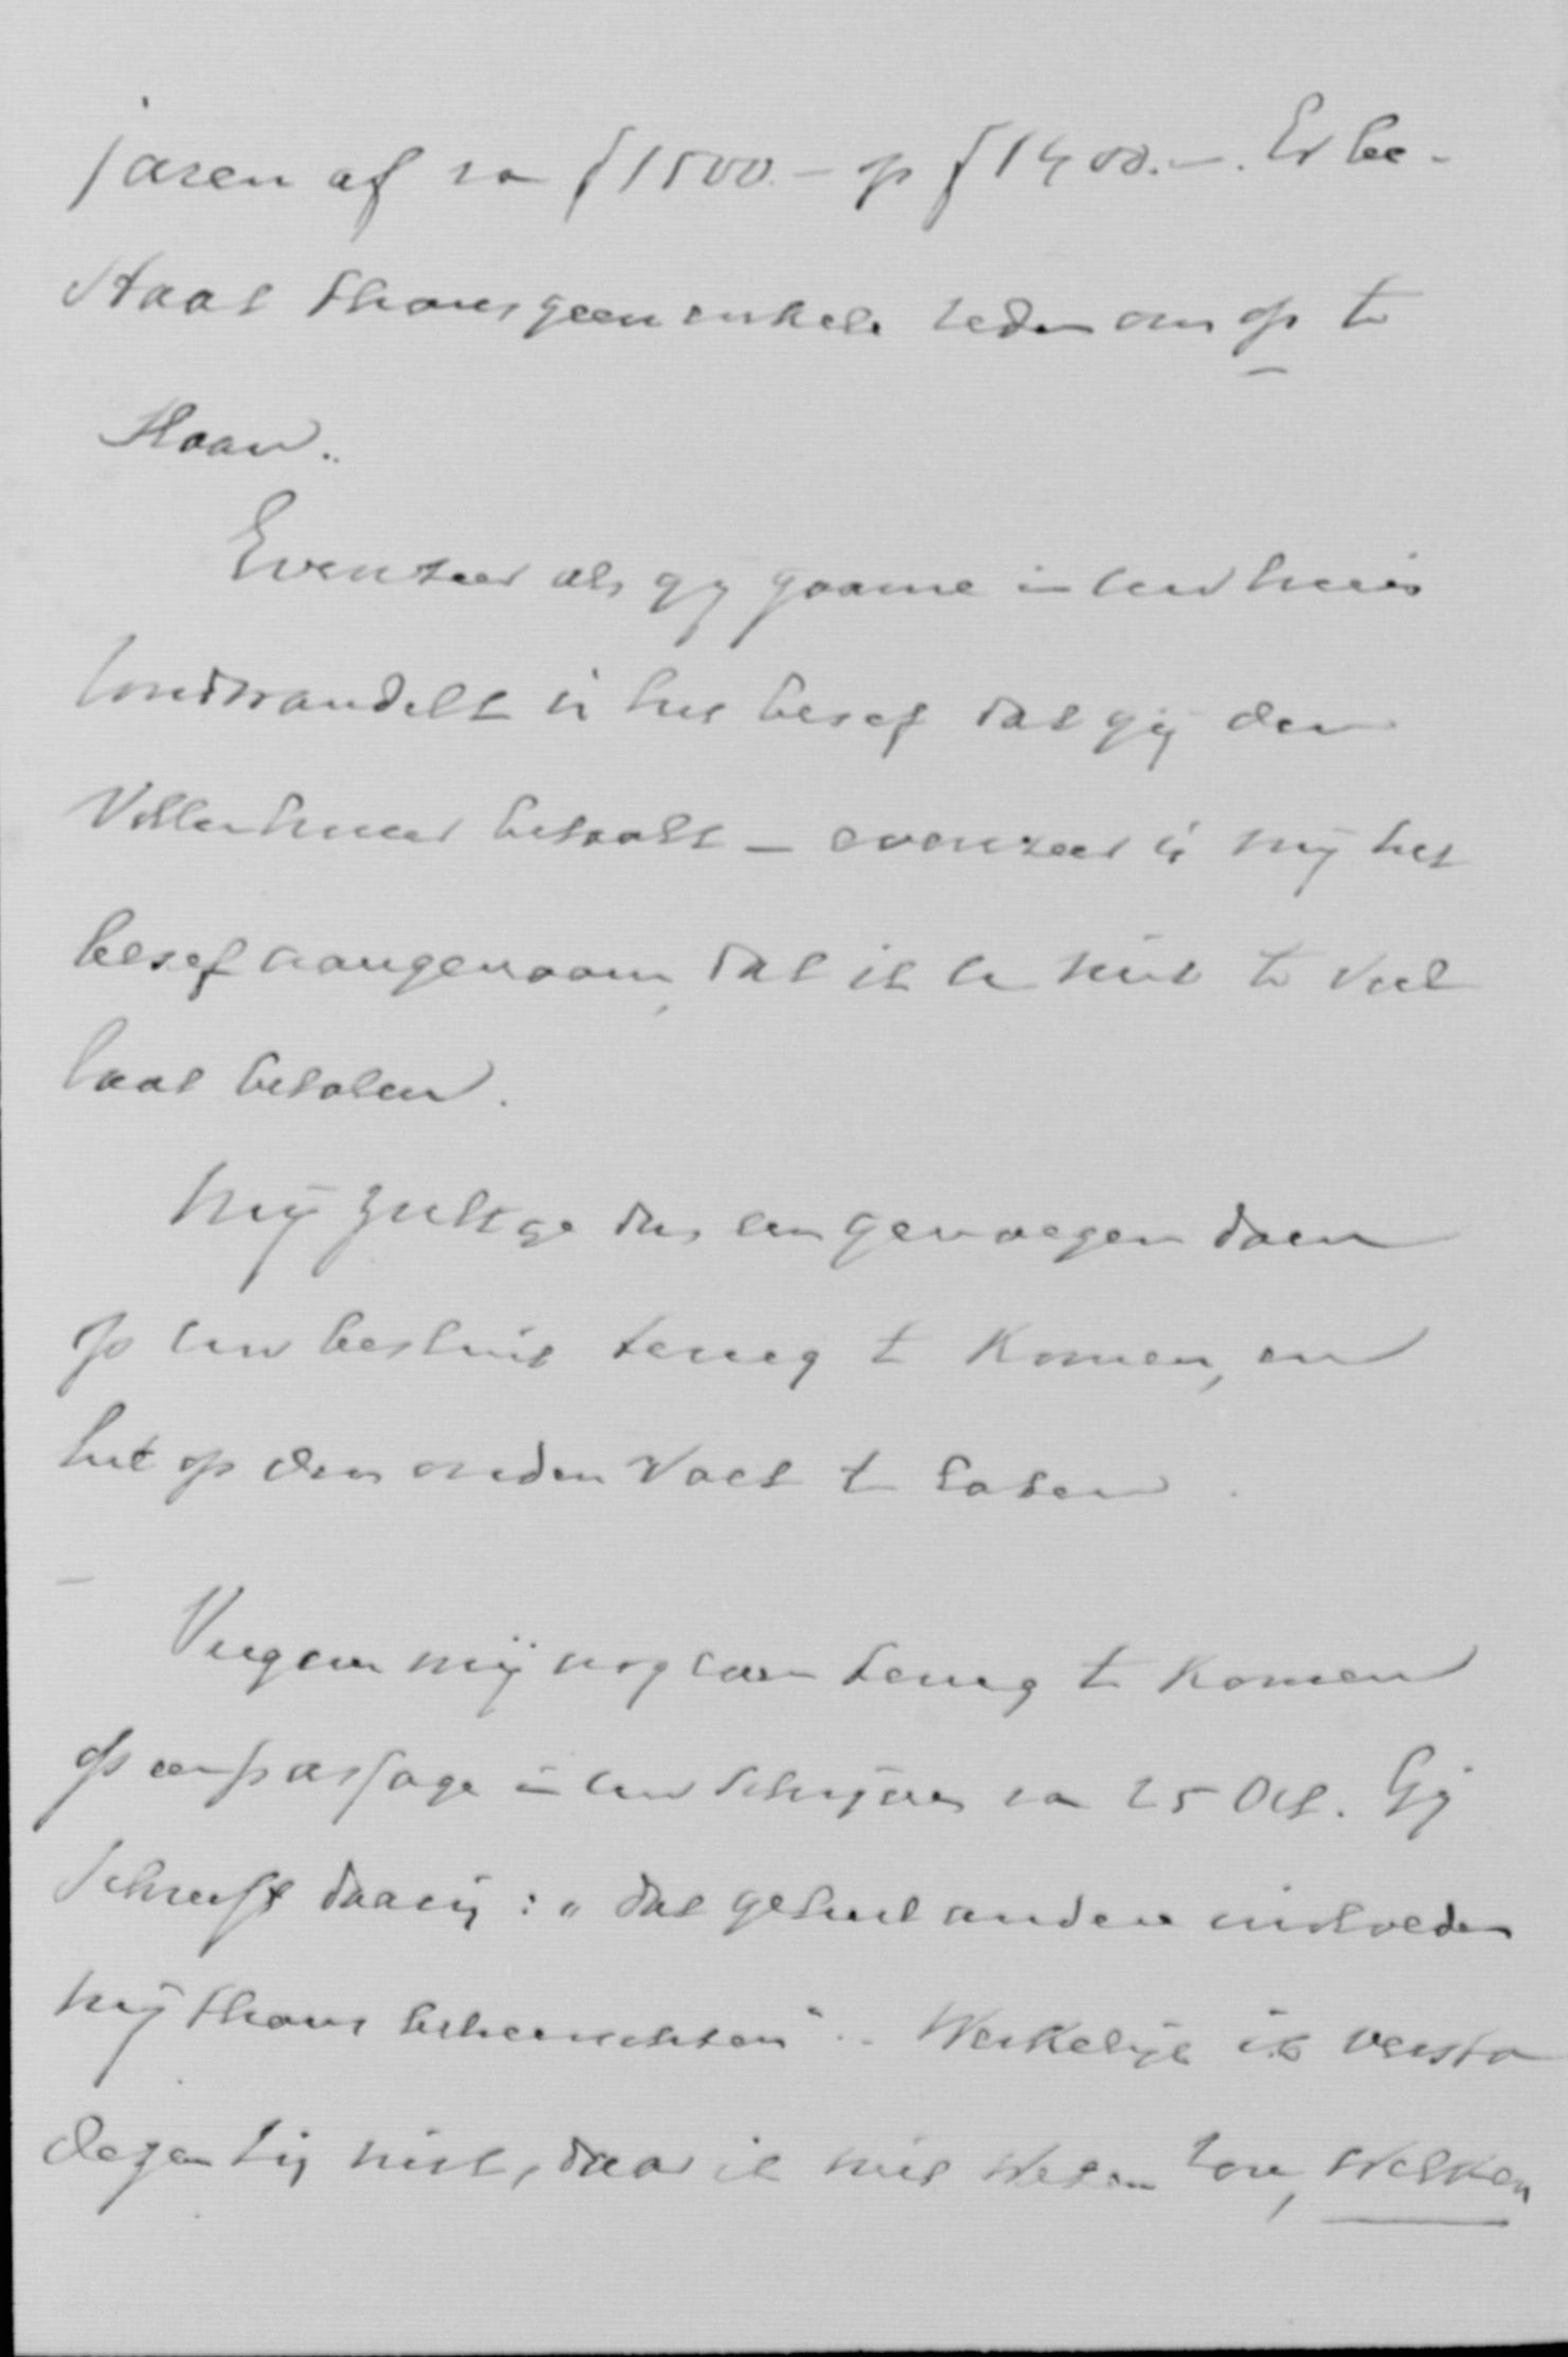 jaren af van f 1500.- op f 1400.-. Er be-
staat thans geen enkele reden om op te
slaan.
Evenzeer als gij gaarne in uw huis
rondwandelt in het besef dat gij den
vollen huur betaalt - evenzeer is mij het
besef aangenaam, dat ik u niet te veel
laat betalen.
Mij zult ge dus een genoegen doen
op uw besluit terug te komen, en
het op den ouden voet te laten.
Vergun mij nog even terug te komen
op een passage in uw schrijven van 25 Oct. Gij
schreeft daarin: "dat geheel andere invloeden
mij thans beheerschten". Werkelijk ik versta
dezen zin niet, daar ik niet weten zou, welken